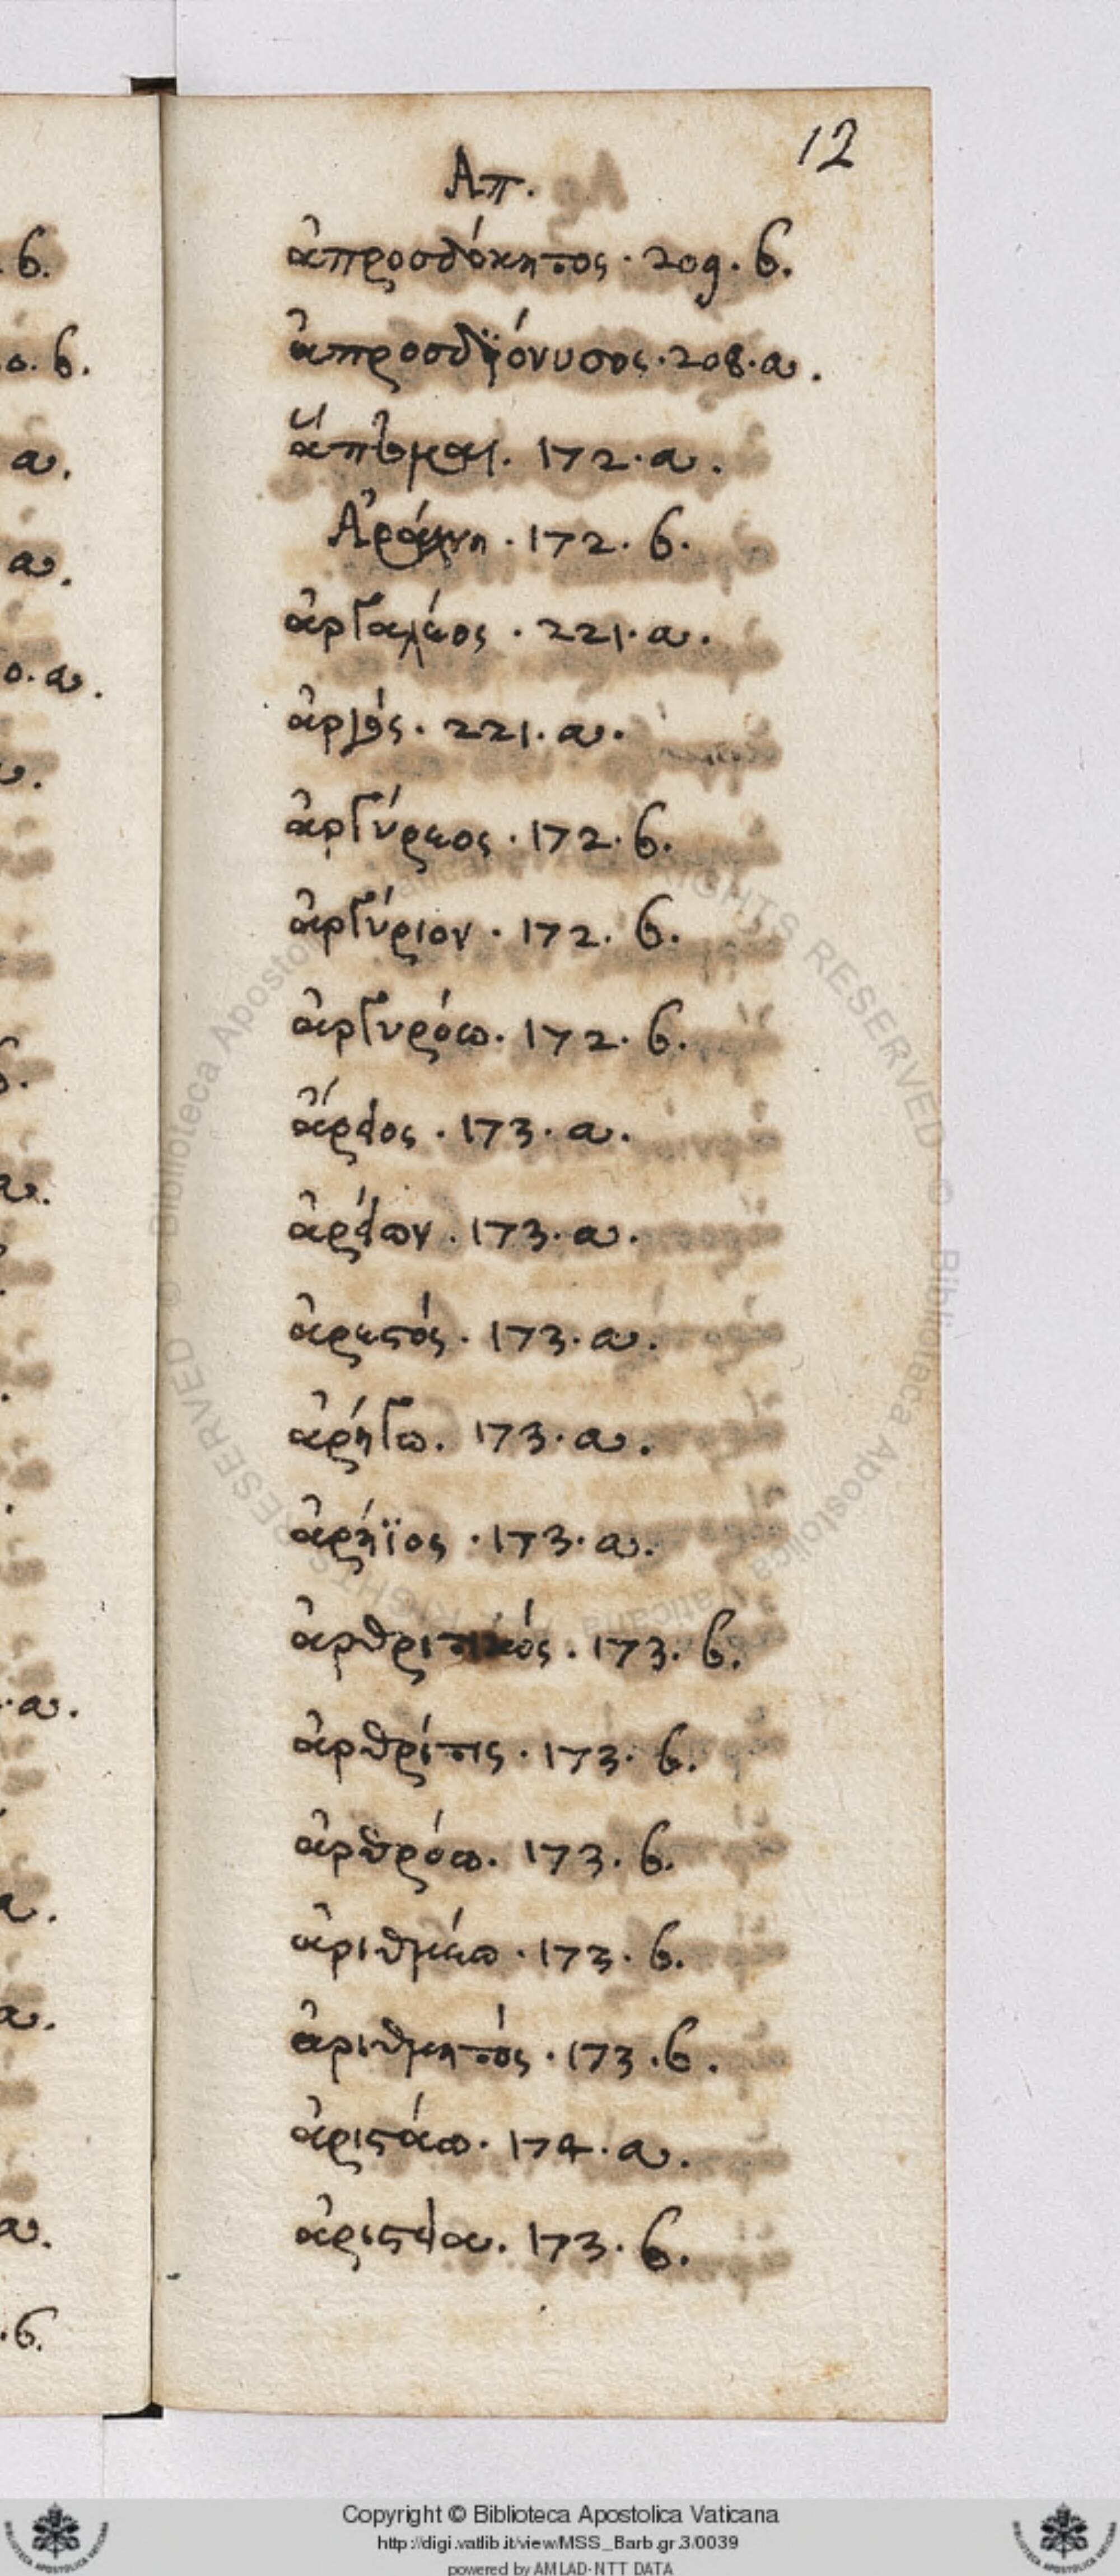 12
Απ.
ἀπροσδόκητος · 209. β.
ἀπροσδϊόνυσος · 208. α.
172. α.
Ἀράχνη · 172. β.
ἀργαλέος · 221. α.
ἀργός · 221. α.
ἀργύρεος · 172. β.
ἀργύριον · 172. β.
ἀργυρόω · 172. β.
173. α.
173. α.
ἀρεστός · 173. α.
ἀρήγω. 173. α.
ἀρήϊος · 173. α.
ἀρθριτικός · 173. β.
ἀρθρίτις · 173. β.
ἀρθρόω. 173. β.
ἀριθμέω · 173. β.
ἀριθμητός · 173. β.
ἀριστάω · 174. α.
173. β.
Copyright © Biblioteca Apostolica Vaticana
http://digi.vatlib.it/view/MSS_Barb.gr.3/0039
powered by AMLAD-NTT DATA